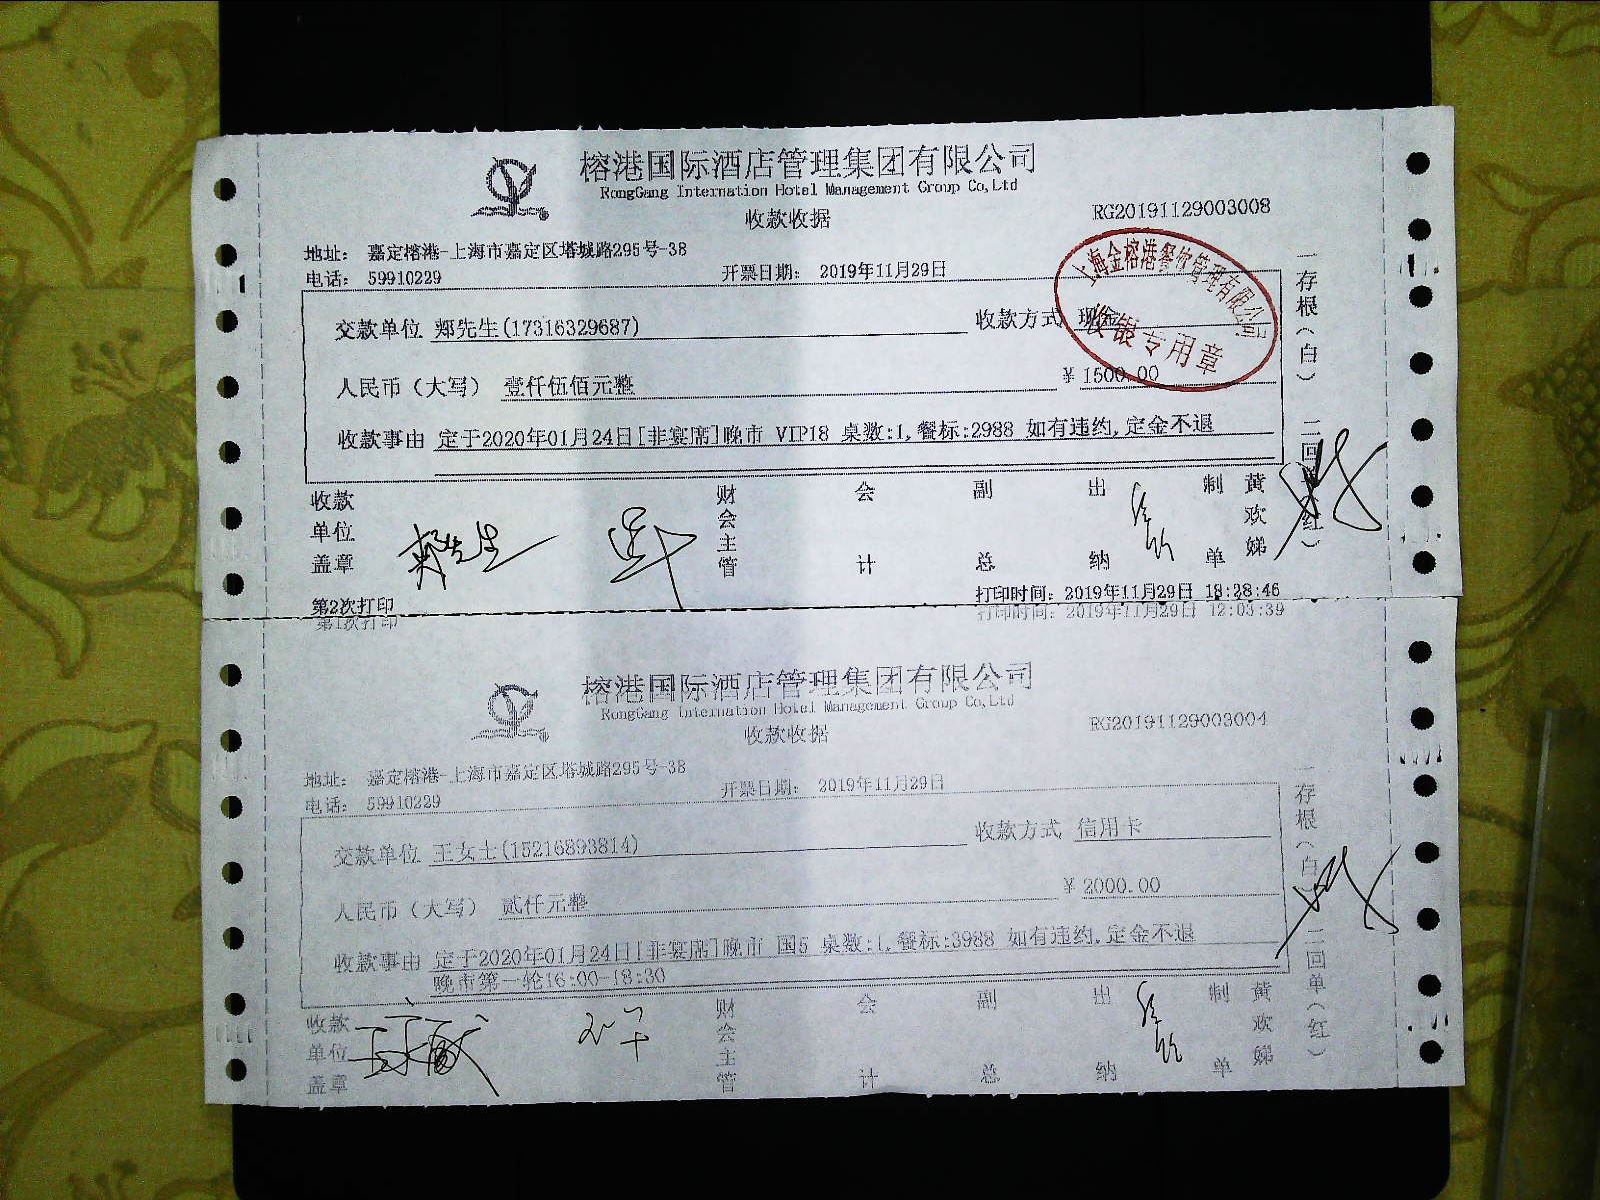 榕港国际酒店管理集团有限公司
RongGang Internation Hotel Management Group Co,Ltd
收款收据
RG20191129003008
地址: 嘉定榕港-上海市嘉定区塔城路295号-38
电话: 59910229
开票日期: 2019年11月29日
交款单位 郏先生(17316329687)
收款方式 现金
上海金榕港餐饮管理有限公司
收银专用章
人民币(大写) 壹仟伍佰元整
¥ 1500.00
收款事由 定于2020年01月24日[非宴席]晚市 VIP18 桌数:1,餐标:2988 如有违约,定金不退
一存根(白) 二回单(红)
收款单位盖章
财会主管
会计
副总
出纳
制单
黄欢娣
第2次打印
打印时间: 2019年11月29日 18:28:46
第1次打印
打印时间: 2019年11月29日 12:03:39
榕港国际酒店管理集团有限公司
RongGang Internation Hotel Management Group Co,Ltd
收款收据
RG20191129003004
地址: 嘉定榕港-上海市嘉定区塔城路295号-38
电话: 59910229
开票日期: 2019年11月29日
交款单位 王女士(15216893814)
收款方式 信用卡
人民币(大写) 贰仟元整
¥ 2000.00
收款事由 定于2020年01月24日[非宴席]晚市 国5 桌数:1,餐标:3988 如有违约,定金不退
晚市第一轮16:00-18:30
一存根(白) 二回单(红)
收款单位盖章
财会主管
会计
副总
出纳
制单
黄欢娣